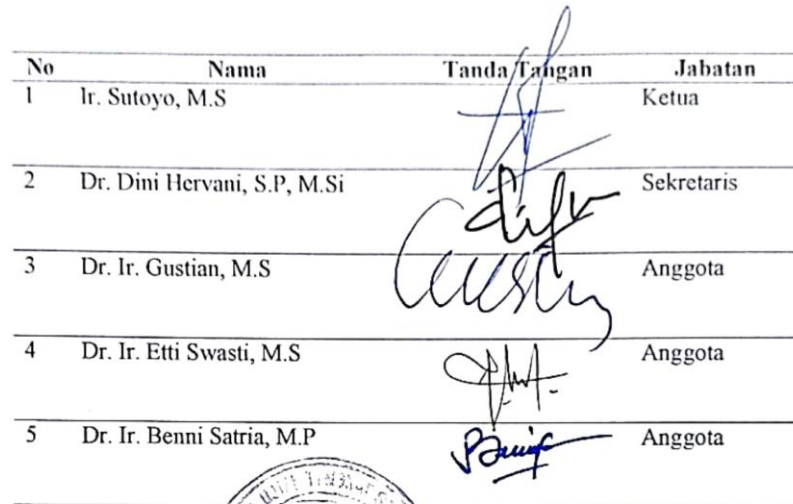 No Nama Tanda Tangan Jabatan
1 Ir. Sutoyo, M.S Ketua
2 Dr. Dini Hervani, S.P, M.Si Sekretaris
3 Dr. Ir. Gustian, M.S Anggota
4 Dr. Ir. Etti Swasti, M.S Anggota
5 Dr. Ir. Benni Satria, M.P Anggota